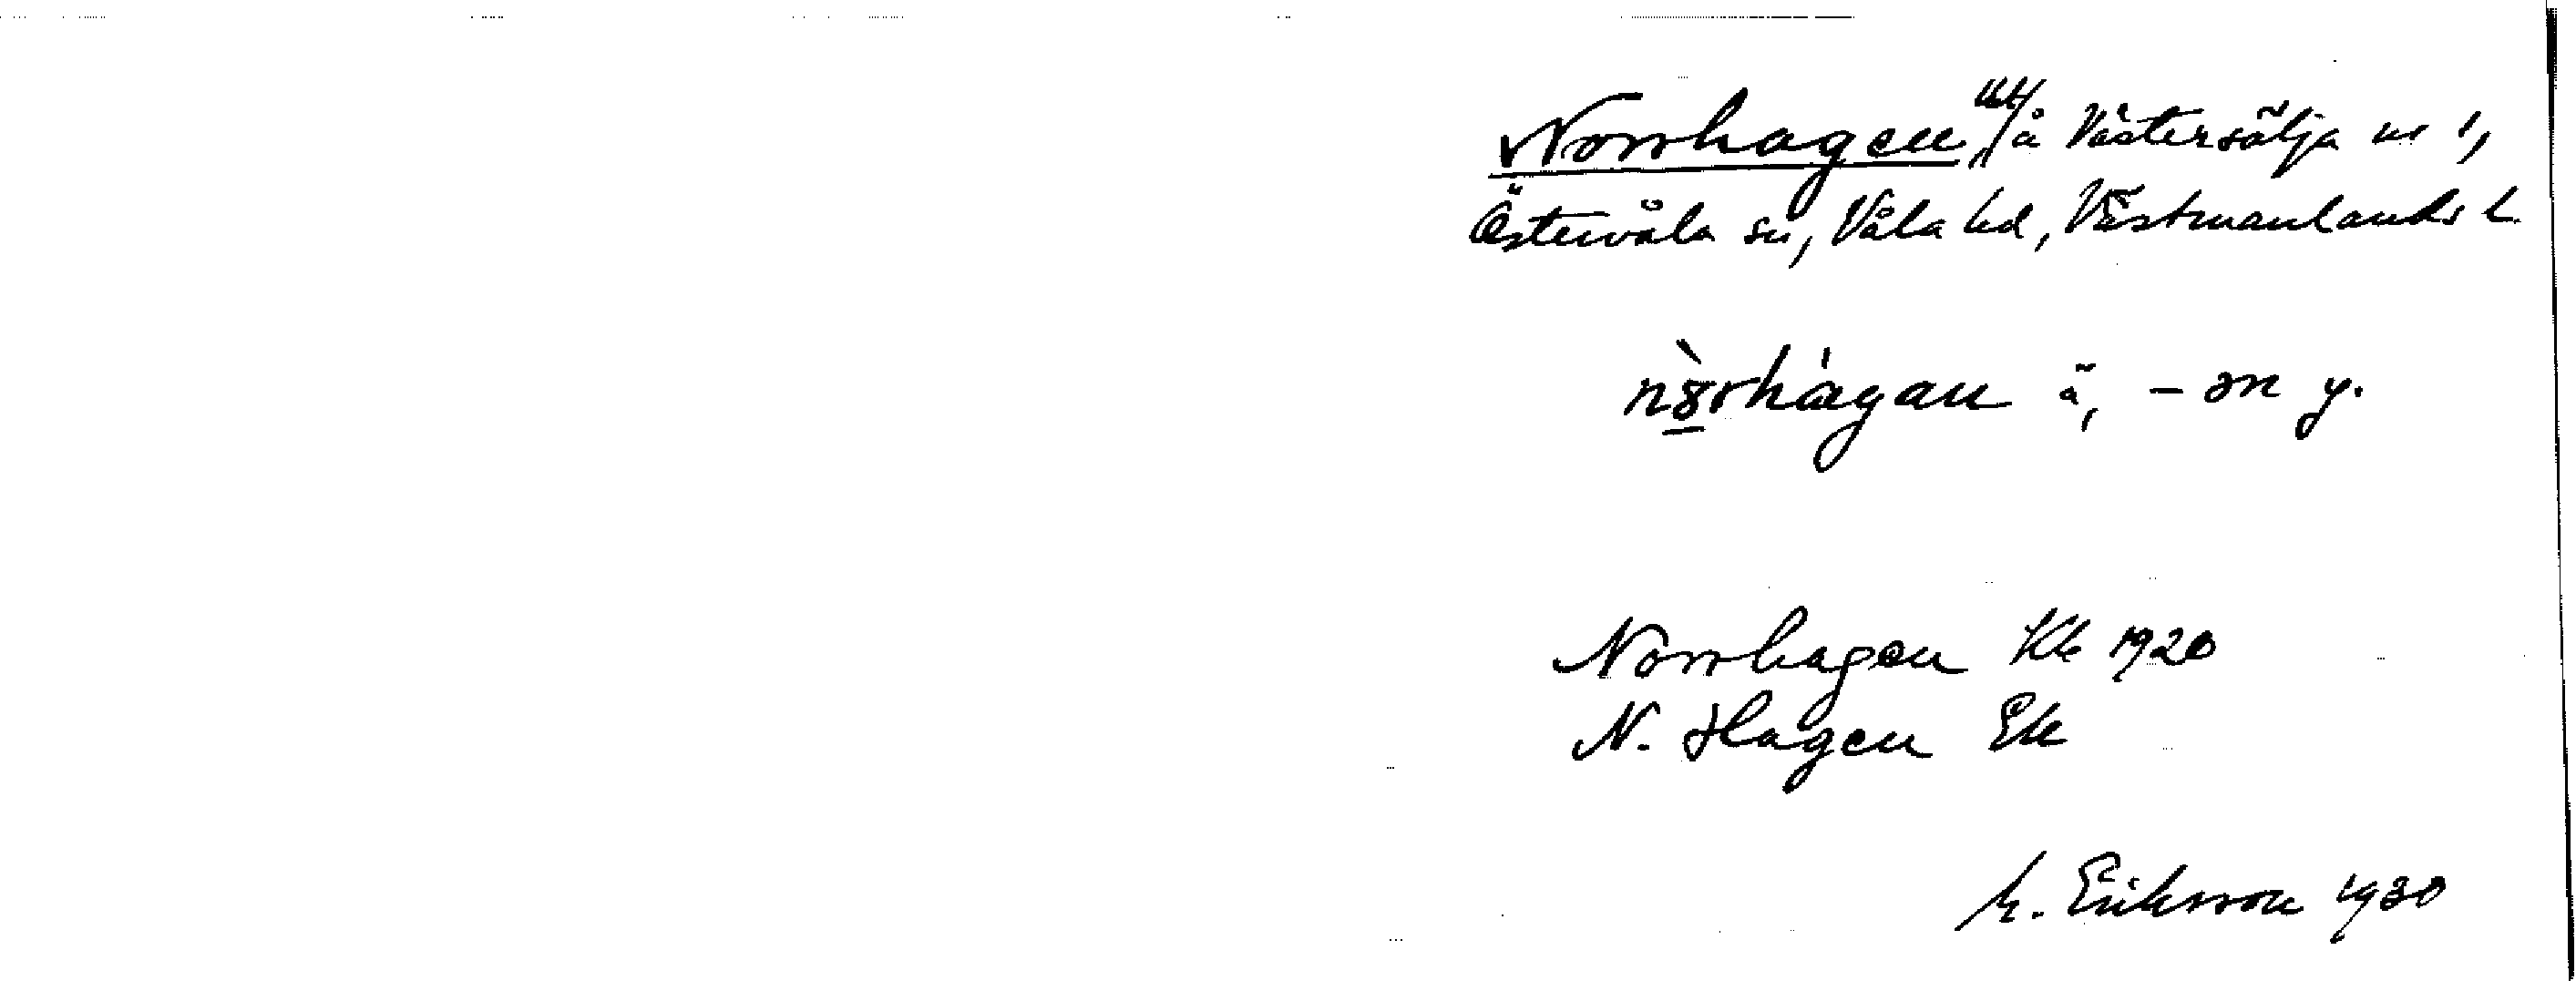 Norrhagen, utj å Västersälja nr 1,
Östervåla sn, Våla hd, Västmanlands l.
nòrhágan ä, -ən y.
Norrhagen Kk 1920
N. Hagen Ek
M. Eriksson 1930